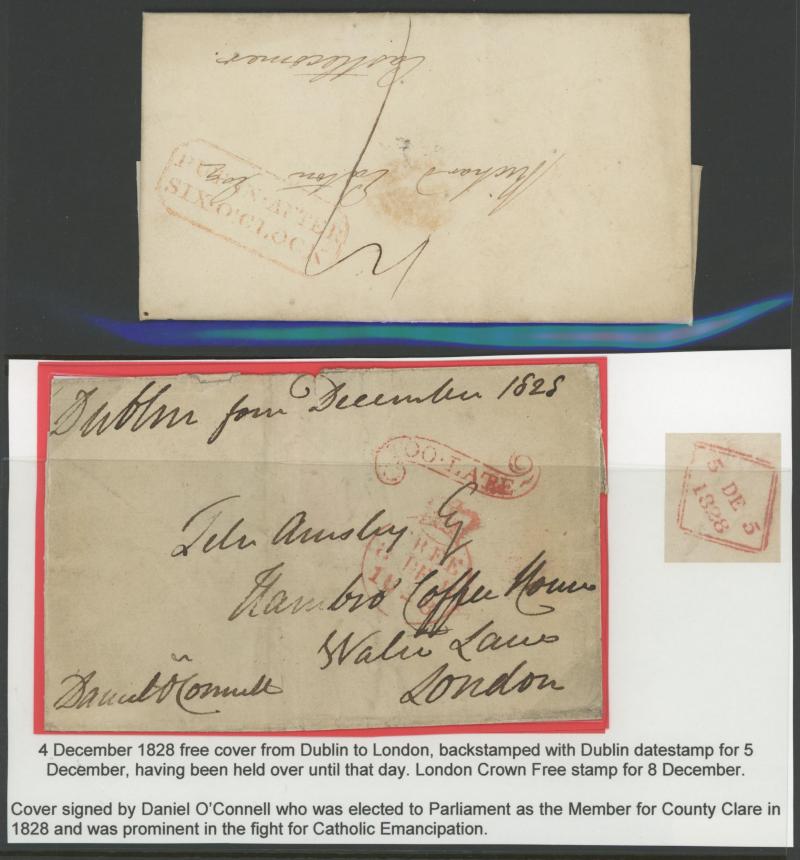 Castlecomer.
Richard Eaton Esq
PUT·IN·AFTER
SIX·O'CLOCK
Dublin four December 1828
TOO·LATE
FREE
8 DE 8
1828
Hambro' Coffee House
Water Lane
London
Daniel O'Connell
5 DE 5
1828
4 December 1828 free cover from Dublin to London, backstamped with Dublin datestamp for 5
December, having been held over until that day. London Crown Free stamp for 8 December.
Cover signed by Daniel O'Connell who was elected to Parliament as the Member for County Clare in
1828 and was prominent in the fight for Catholic Emancipation.